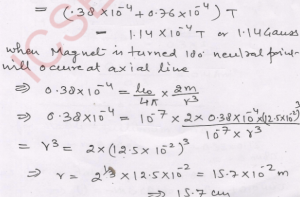 = (.38×10⁻⁴ + 0.76×10⁻⁴) T
= 1.14×10⁻⁴ T or 1.14 Gauss
when Magnet is turned 180 neutral point
will occure at axial line
⇒ 0.38×10⁻⁴ = μ₀/4π × 2m/r³
⇒ 0.38×10⁻⁴ = 10⁻⁷ × 2×0.38×10⁻⁴×(12.5×10⁻²)³/10⁻⁷ × r³
= r³ = 2×(12.5×10⁻²)³
⇒ r = 2^(1/3) × 12.5×10⁻² = 15.7×10⁻² m
⇒ 15.7 cm